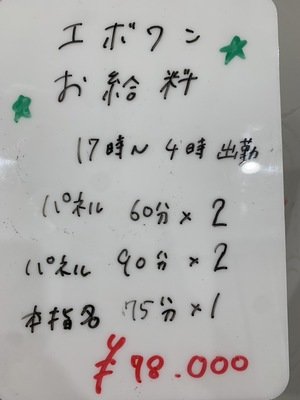 エボワン
お給料
17時~4時 出勤
パネル 60分×2
パネル 90分×2
本指名 75分×1
¥98.000